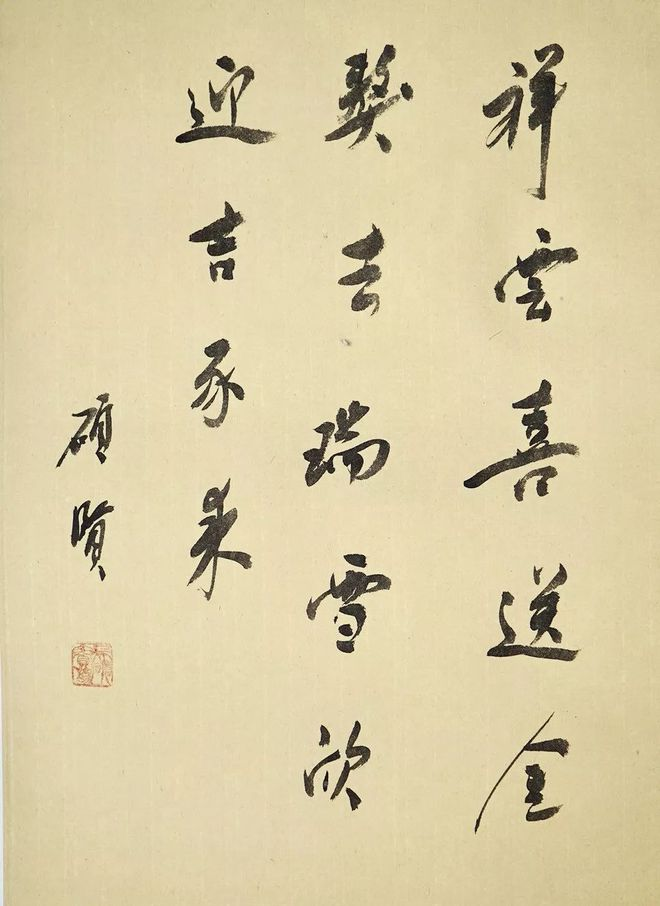 祥雲喜送金
獒去瑞雪欣
迎吉豕来
碩賢